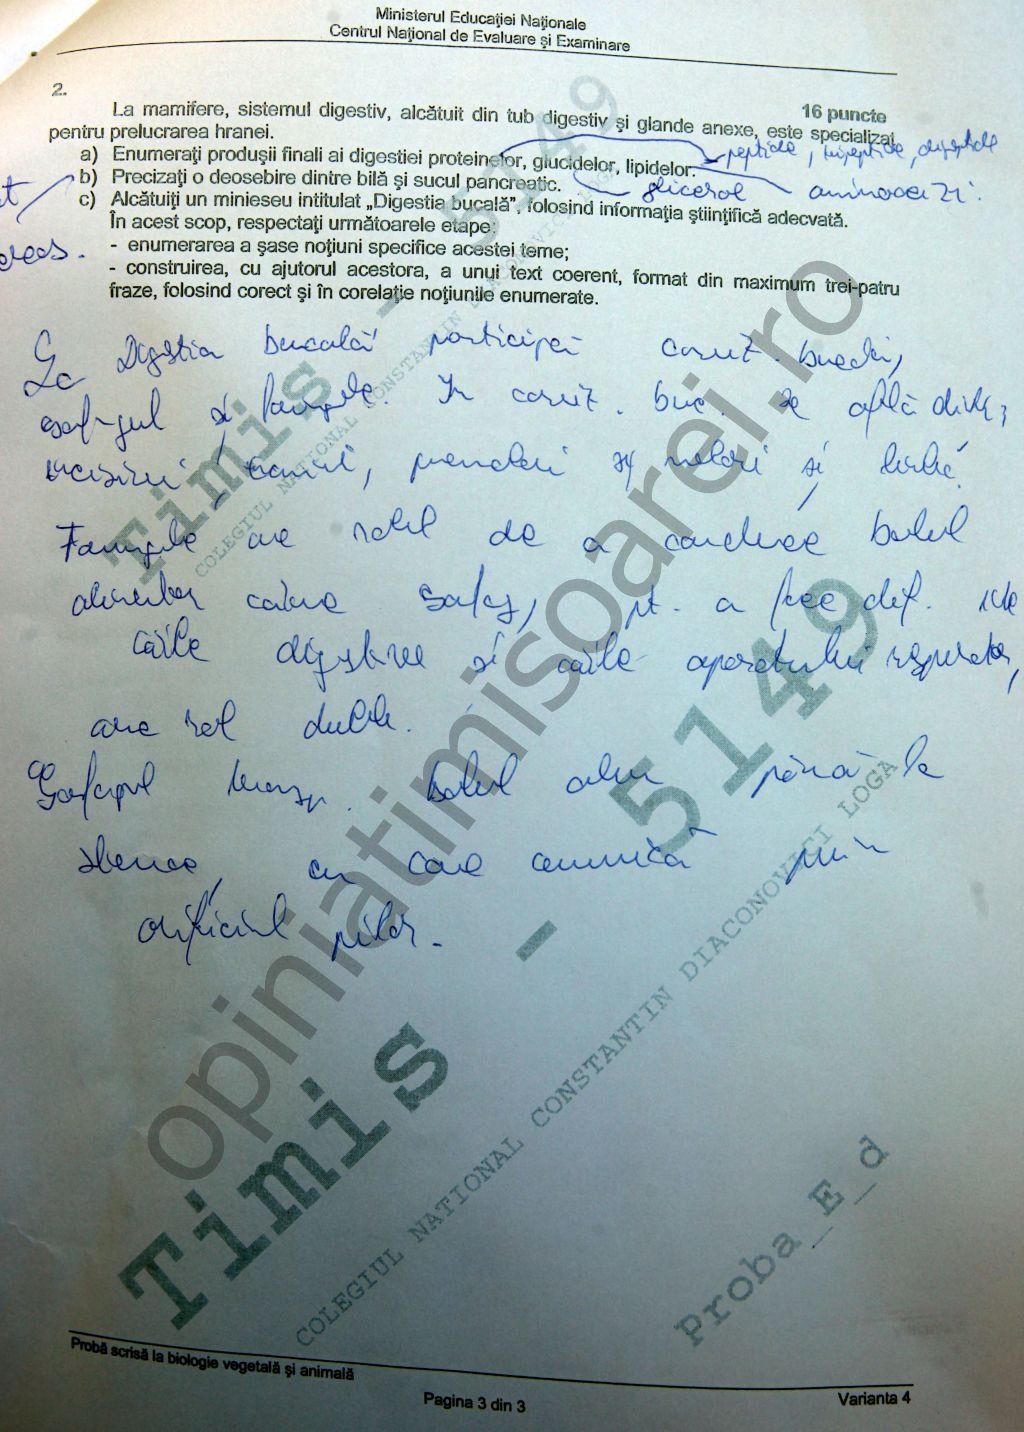 Ministerul Educației Naționale
Centrul Național de Evaluare și Examinare
2. 16 puncte
La mamifere, sistemul digestiv, alcătuit din tub digestiv și glande anexe, este specializat
pentru prelucrarea hranei.
a) Enumerați produșii finali ai digestiei proteinelor, glucidelor, lipidelor. peptide, tripeptide, dipeptide
b) Precizați o deosebire dintre bilă și sucul pancreatic. glicerol aminoacizi.
c) Alcătuiți un minieseu intitulat „Digestia bucală”, folosind informația științifică adecvată.
În acest scop, respectați următoarele etape:
- enumerarea a șase noțiuni specifice acestei teme;
- construirea, cu ajutorul acestora, a unui text coerent, format din maximum trei-patru
fraze, folosind corect și în corelație noțiunile enumerate.
La Digestia bucală participă cavit. bucală,
esofagul și faringele. În cavit. buc. se află dinți,
incisivi, canini, premolari și molari și limbă.
Faringele are rolul de a conduce bolul
alimentar către esofag, pt. a face dif. între
căile digestive și căile aparatului respirator,
are rol dublu.
Esofagul transp. bolul alim până la
stomac, cu care comunică prin
orificiul pilor.
Probă scrisă la biologie vegetală și animală
Pagina 3 din 3
Varianta 4
Timis - 5149
COLEGIUL NATIONAL CONSTANTIN DIACONOVICI LOGA
opiniatimisoarei.ro
Timis - 5149
COLEGIUL NATIONAL CONSTANTIN DIACONOVICI LOGA
Proba_E_d